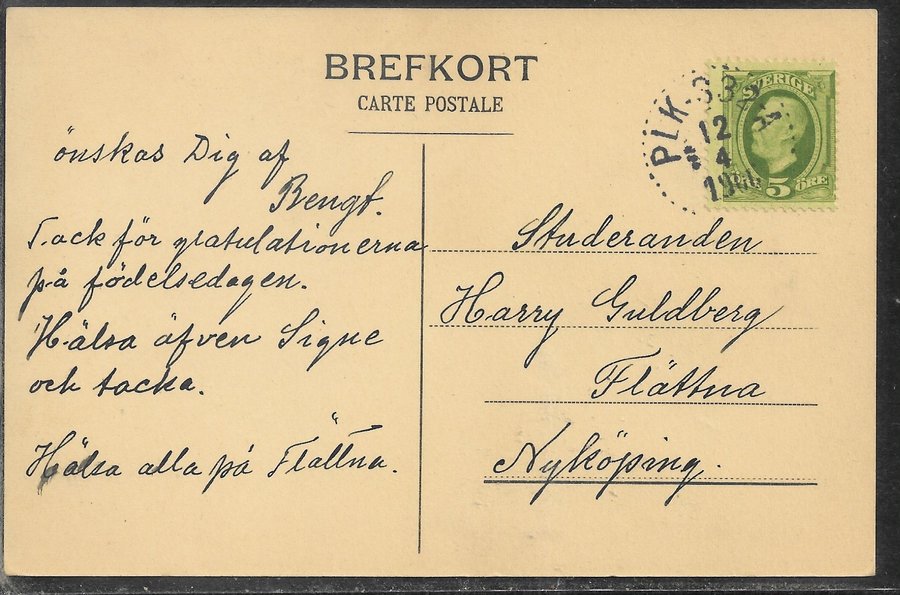 BREFKORT
CARTE POSTALE
önskas Dig af
Bengt.
Tack för gratulationerna
på födelsedagen.
Hälsa äfven Signe
och tacka.
Hälsa alla på Flättna.
PLK.
12
4
SVERIGE
5 ÖRE
Studeranden
Harry Guldberg
Flättna
Nyköping.